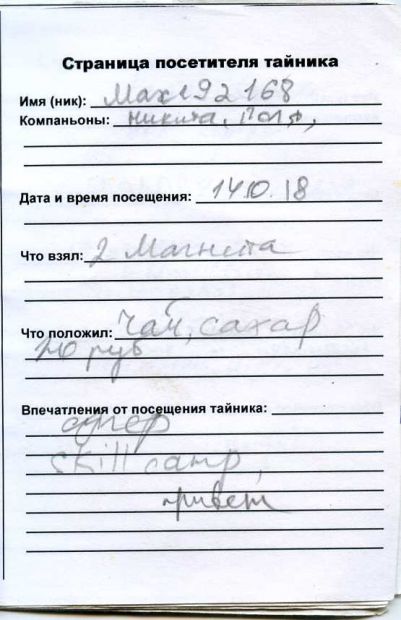 Страница посетителя тайника
Имя (ник): Max192168
Компаньоны: Никита, Поля,
Дата и время посещения: 14.10.18
Что взял: 2 Магнита
Что положил: Чай, сахар
20 руб
Впечатления от посещения тайника:
супер
skill camp,
привет